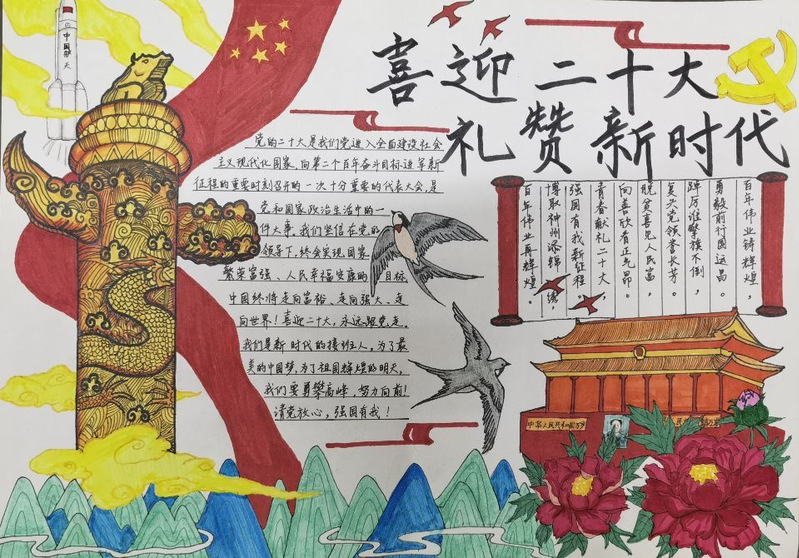 中国航天
喜迎二十大
礼赞新时代
党的二十大是我们党进入全面建设社会
主义现代化国家、向第二个百年奋斗目标进军新
征程的重要时刻召开的一次十分重要的代表大会,是
党和国家政治生活中的一
件大事。我们坚信在党的
领导下,终会实现国家
繁荣富强、人民幸福安康的目标
中国终将走向富裕、走向强大、走
向世界!喜迎二十大,永远跟党走。
我们是新时代的接班人,为了最
美的中国梦,为了祖国辉煌的明天,
我们要勇攀高峰,努力向前!
请党放心,强国有我!
百年伟业铸辉煌,
勇毅前行国运昌。
踔厉谁擎旗不倒,
复兴党领誉长芳。
脱贫喜见人民富,
向善欣看正气昂。
青春献礼二十大,
强国有我新征程。
博取神州添锦绣,
百年伟业再辉煌。
中华人民共和国万岁